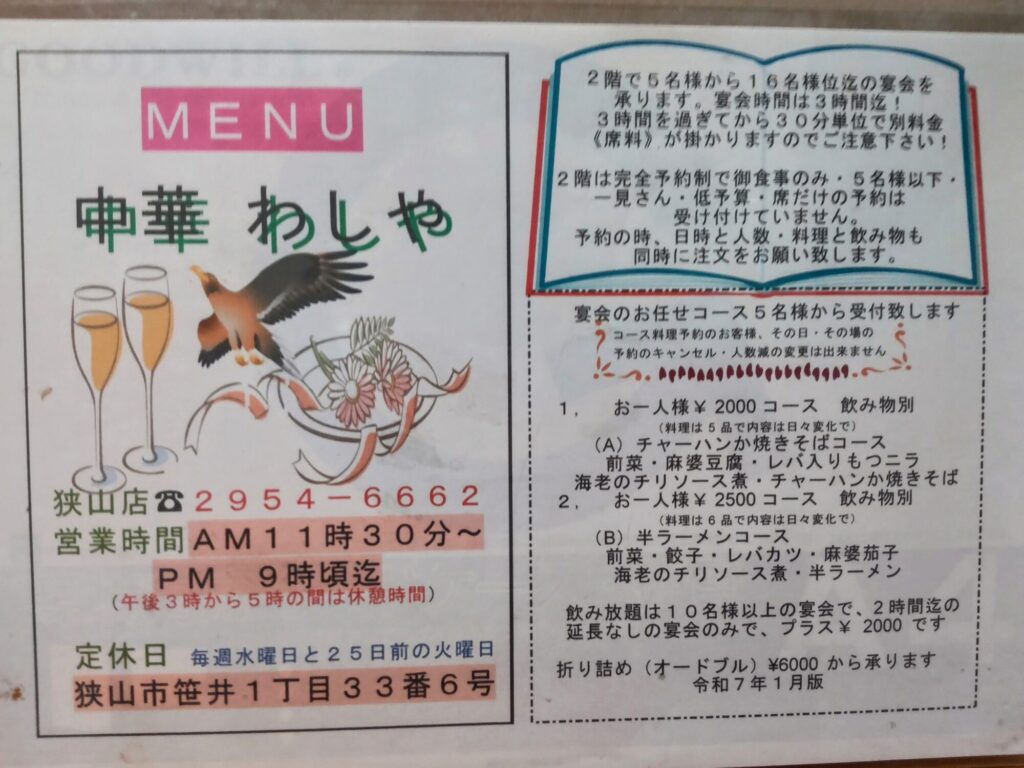 MENU
中華 わしや
狭山店☎2954-6662
営業時間AM11時30分~
PM 9時頃迄
(午後3時から5時の間は休憩時間)
定休日 毎週水曜日と25日前の火曜日
狭山市笹井1丁目33番6号
2階で5名様から16名様位迄の宴会を
承ります。宴会時間は3時間迄!
3時間を過ぎてから30分単位で別料金
《席料》が掛かりますのでご注意下さい!
2階は完全予約制で御食事のみ・5名様以下・
一見さん・低予算・席だけの予約は
受け付けていません。
予約の時、日時と人数・料理と飲み物も
同時に注文をお願い致します。
宴会のお任せコース5名様から受付致します
コース料理予約のお客様、その日・その場の
予約のキャンセル・人数減の変更は出来ません
1, お一人様¥2000コース 飲み物別
(料理は5品で内容は日々変化で)
(A)チャーハンか焼きそばコース
前菜・麻婆豆腐・レバ入りもつニラ
海老のチリソース煮・チャーハンか焼きそば
2, お一人様¥2500コース 飲み物別
(料理は6品で内容は日々変化で)
(B)半ラーメンコース
前菜・餃子・レバカツ・麻婆茄子
海老のチリソース煮・半ラーメン
飲み放題は10名様以上の宴会で、2時間迄の
延長なしの宴会のみで、プラス¥2000です
折り詰め(オードブル)¥6000から承ります
令和7年1月版